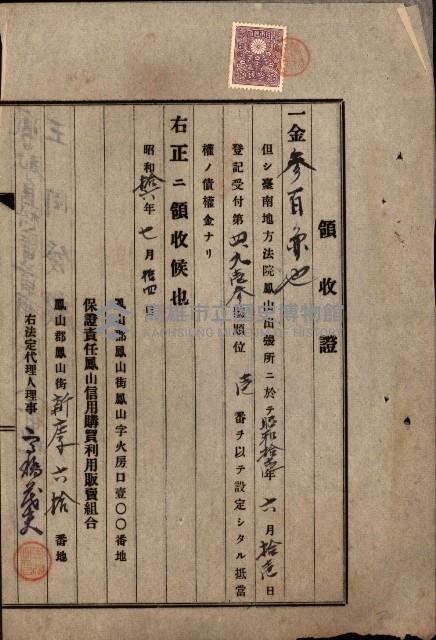 領收證
一金參百圓也
但シ臺南地方法院鳳山出張所ニ於テ昭和拾壱年六月拾壱日
登記受付第四九壱參號順位壱番ヲ以テ設定シタル抵當
權ノ債權金ナリ
右正ニ領收候也
昭和拾六年七月拾四日
鳳山郡鳳山街鳳山字火房口壹〇〇番地
保證責任鳳山信用購買利用販賣組合
鳳山郡鳳山街新庄六拾番地
右法定代理人理事
高雄市立歷史博物館